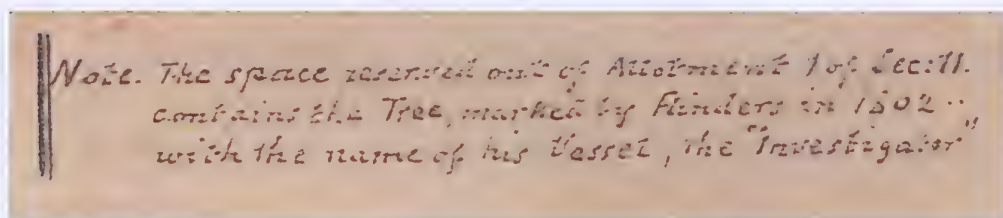 Note. The space reserved out of Allotment 1 of Sec: 11.
contains the Tree, marked by Flinders in 1802..
with the name of his Vessel, the "Investigator"